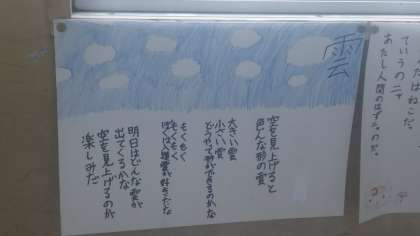 雲
空を見上げると
色んな形の雲
大きい雲
小さい雲
どうやって形ができるのかな
もくもく
もくもく
ぼくは入道雲が好きだな
明日はどんな雲が
出てくるかな
空を見上げるのが
楽しみだ
ていうのニャ
あたし人間のはずニャのだ。